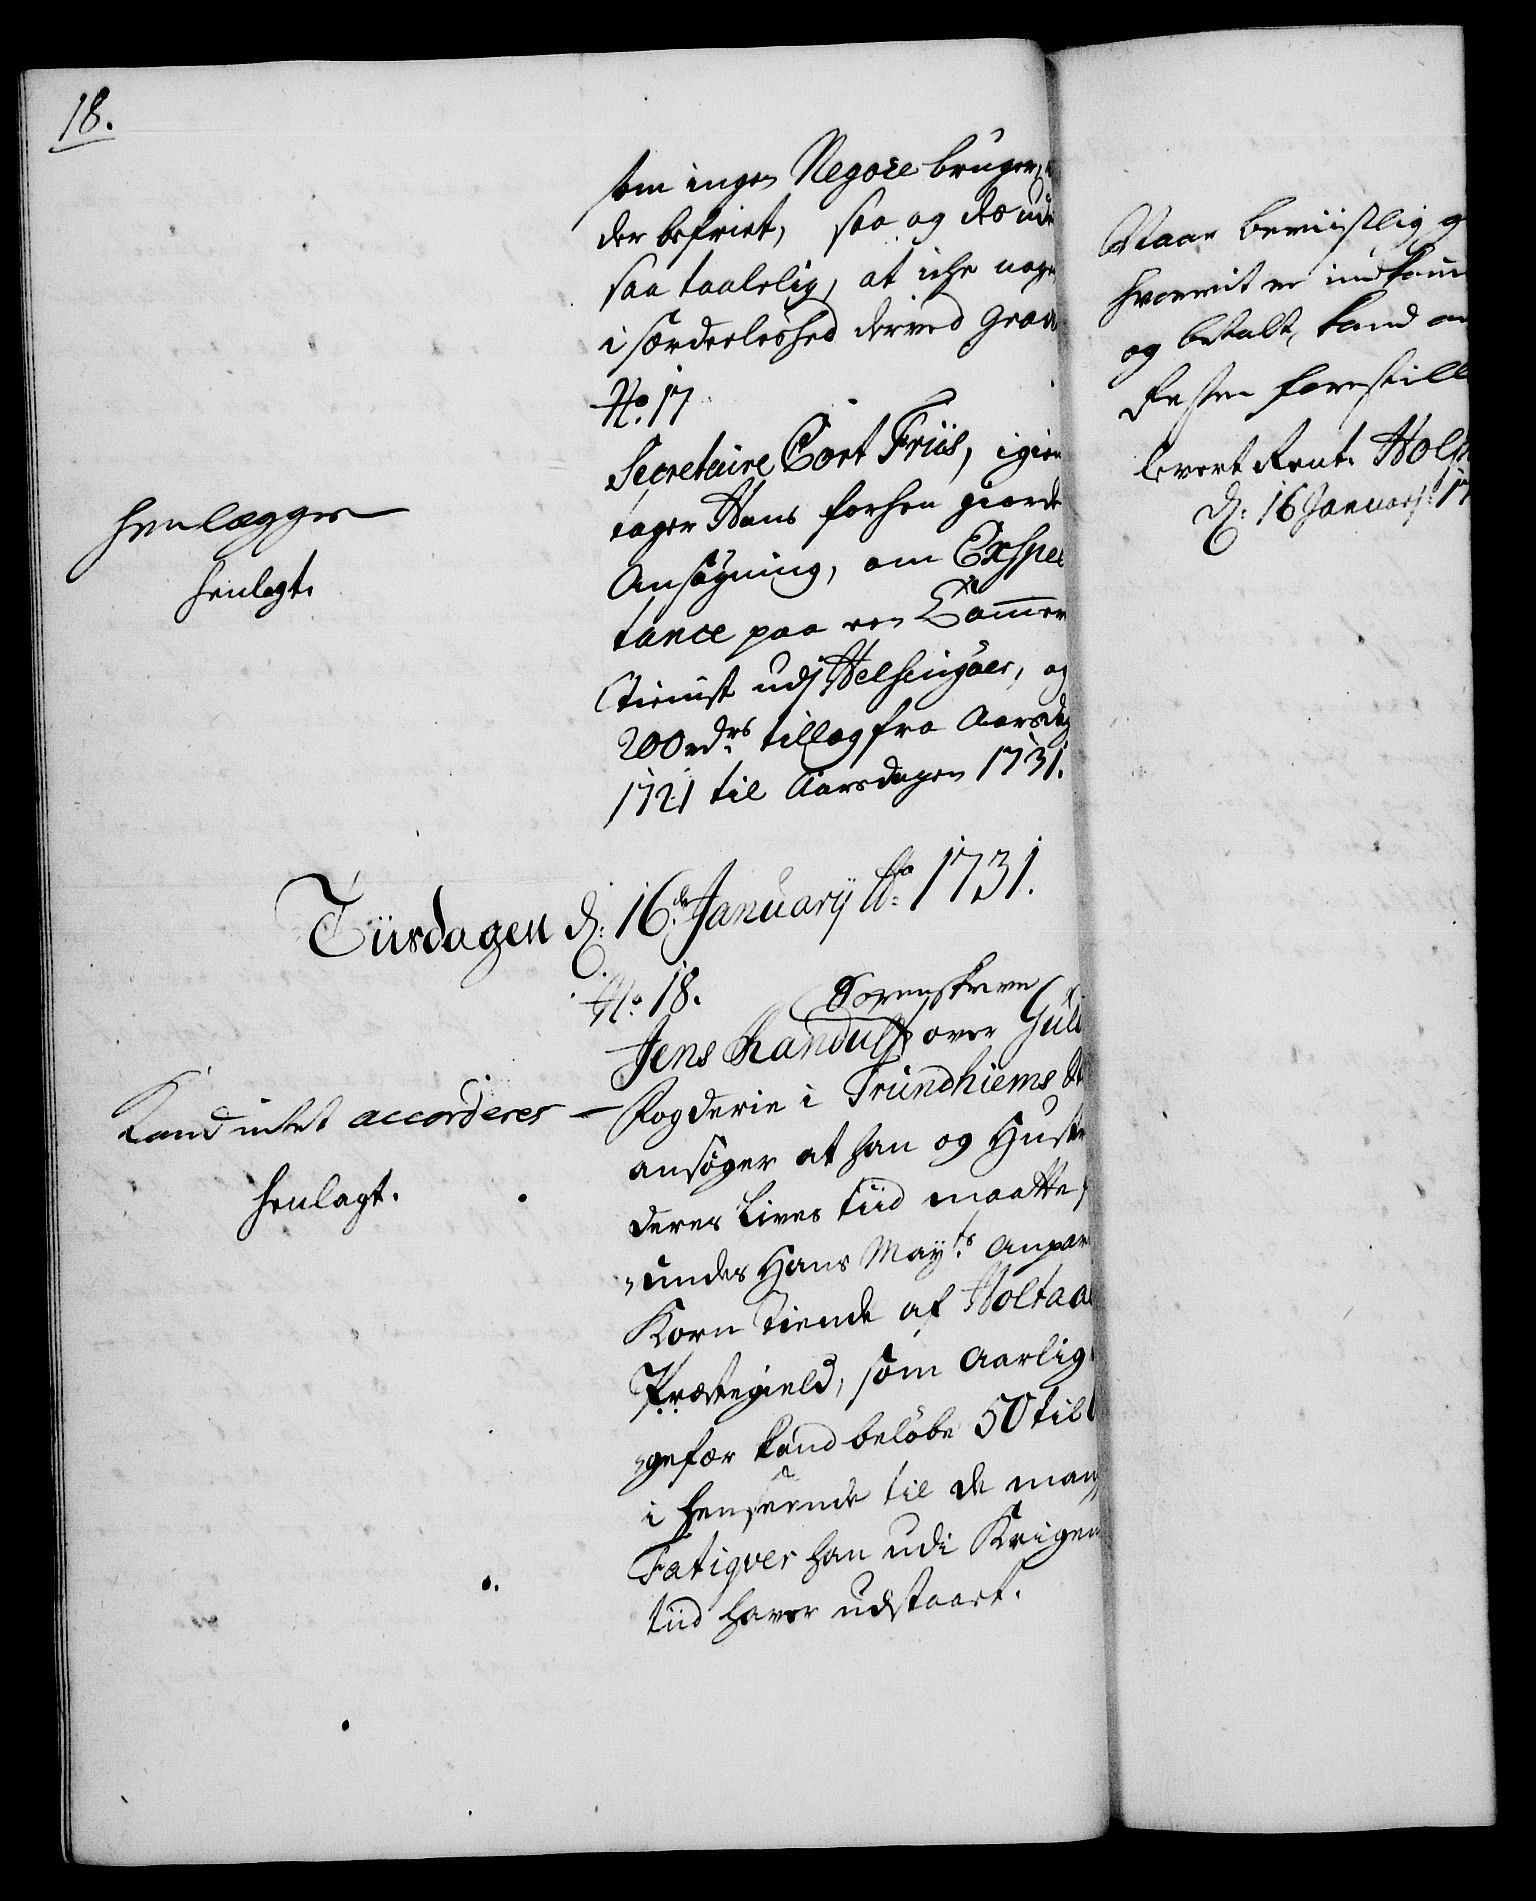 18.
som ingen Negoce bruger,
der befriet, saa og de ud
saa taalelig, at iche nogen
i særdeeleshed derved grav
No. 17
Secretaire Cort Friis, igien
tager Hans forhen giorde
Ansøgning, om Exspec
tance paa en Cammer
Tieniste udj Helsingøer, og
200 rdrs tillæg fra Aarsdag
1721 til Aarsdagen 1731.
henlægges
henlagt.
Tiisdagen d: 16de January Ao 1731.
No. 18.
Sorenskrive
Jens Randulf over Guld
Fogderie i Trundhiems St
ansøger at han og Hustr
deres Lives tiid maatte
undes Hans Mayts Anpar
Korn Tiende af Holtaa
Præstegield, som Aarlig
gefær kand beløbe 50 til
i henseende til de mang
Fatiqver han udi Krigen
tiid haver udstaaet.
Kand intet accorderes —
henlagt.
Naar beviislig g
hvorvit er indkom
og betalt, kand om
Resten forestill
levert Rent. Hols
d: 16 Januarj: 17